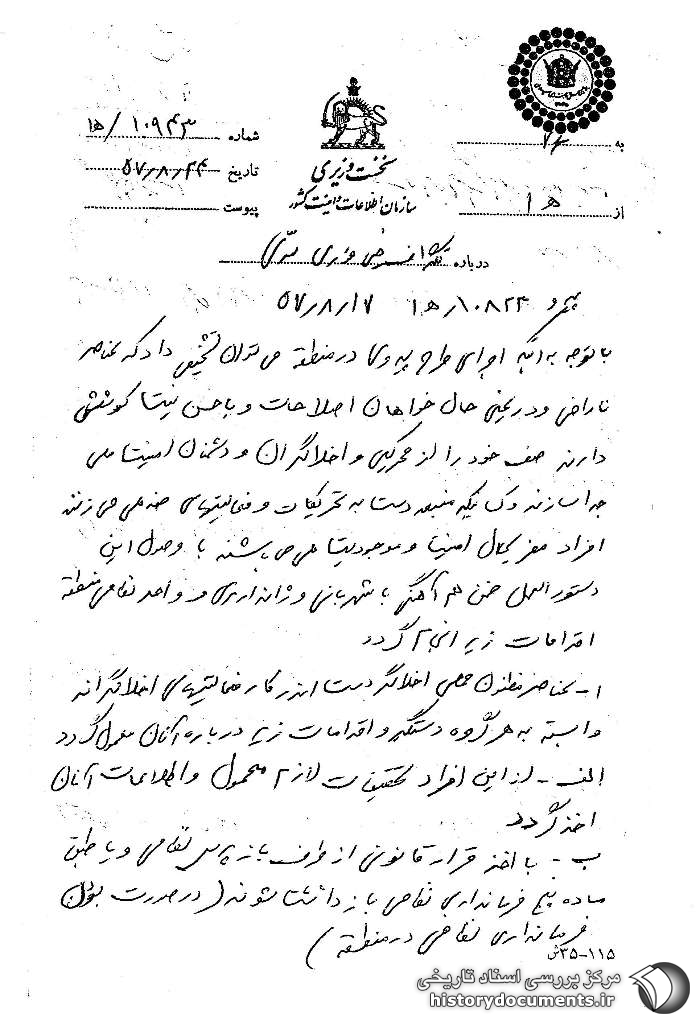 شماره ۱۰۹۴۳/ه۱
به ۷۴
تاریخ ۵۷/۸/۲۴
نخست وزیری
سازمان اطلاعات و امنیت کشور
پیوست
از ه ۱
درباره
پیرو ۱۰۸۲۴/ه۱ ۵۷/۸/۱۷
با توجه به اینکه اجرای طرح پیروی در منطقه می توان تشخیص داد که عناصر
ناراضی و در عین حال خواهان اصلاحات و با حسن نیت کوشش
دارند صف خود را از محرکین و اخلالگران و دشمنان امنیت ملی
جدا سازند و کسانیکه منبعد دست به تحریکات و فعالیتهای ضد ملی می زنند
افراد مضر بحال امنیت و موجودیت ملی می باشند با وصول این
دستورالعمل ضمن هم آهنگی با شهربانی و ژاندارمری و واحد نظامی منطقه
اقدامات زیر انجام گردد
۱- عناصر مظنون اخلالگر دست اندرکار فعالیتهای اخلالگرانه
وابسته به هر گروه دستگیر و اقدامات زیر درباره آنان معمول گردد
الف - از این افراد تحقیقات لازم معمول و اطلاعات آنان
اخذ گردد
ب - با اخذ قرار قانونی از طرف بازپرس نظامی و یا طبق
ماده پنج فرمانداری نظامی بازداشت شوند (در صورت بودن
فرمانداری نظامی در منطقه)
۱۱۵-۳۵ش
مرکز بررسی اسناد تاریخی
historydocuments.ir